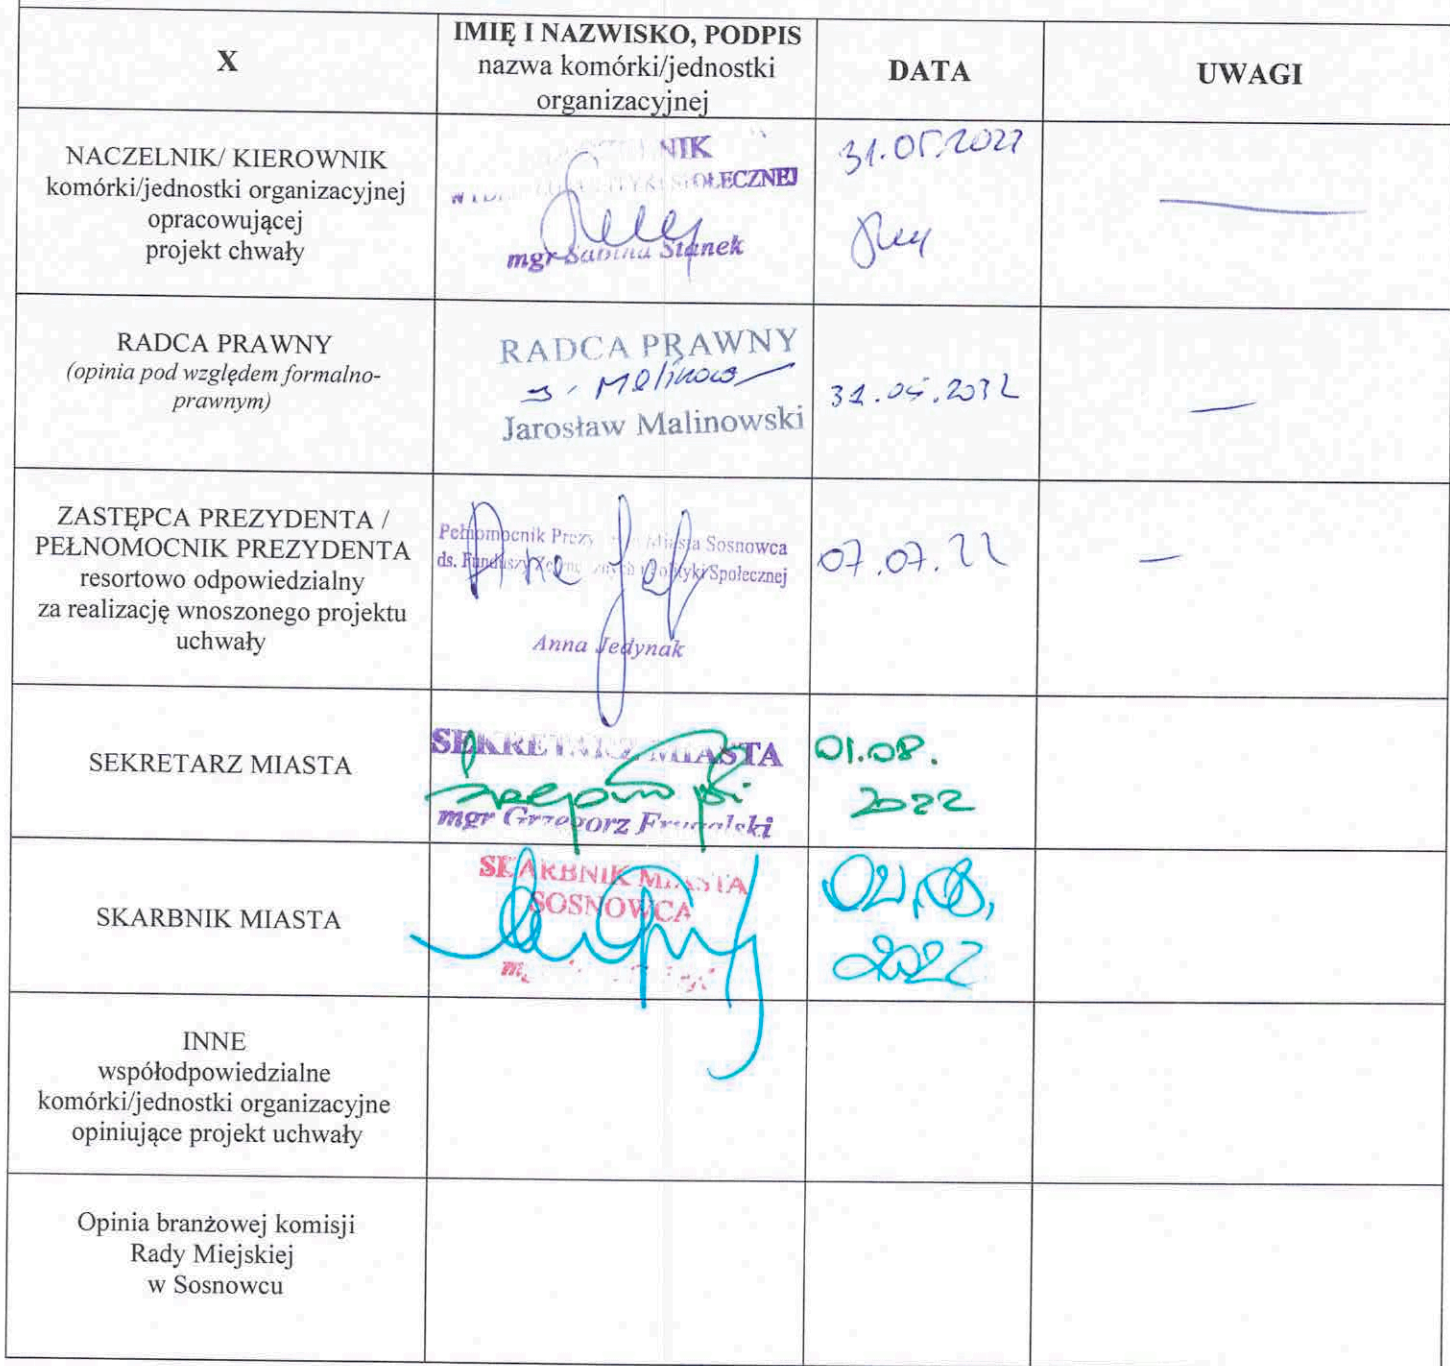 X
IMIĘ I NAZWISKO, PODPIS
nazwa komórki/jednostki
organizacyjnej
DATA
UWAGI
NACZELNIK/ KIEROWNIK
komórki/jednostki organizacyjnej
opracowującej
projekt chwały
NIK
SPOŁECZNEJ
mgr Sabina Stanek
31.05.2022
RADCA PRAWNY
(opinia pod względem formalno-
prawnym)
RADCA PRAWNY
Jarosław Malinowski
31.05.2022
ZASTĘPCA PREZYDENTA /
PEŁNOMOCNIK PREZYDENTA
resortowo odpowiedzialny
za realizację wnoszonego projektu
uchwały
Pełnomocnik Prezydenta Miasta Sosnowca
ds. Funduszy Zewnętrznych i Polityki Społecznej
Anna Jedynak
07.07.22
—
SEKRETARZ MIASTA
SEKRETARZ MIASTA
mgr Grzegorz
01.08.
2022
SKARBNIK MIASTA
SKARBNIK MIASTA
SOSNOWCA
02.08,
2022
INNE
współodpowiedzialne
komórki/jednostki organizacyjne
opiniujące projekt uchwały
Opinia branżowej komisji
Rady Miejskiej
w Sosnowcu